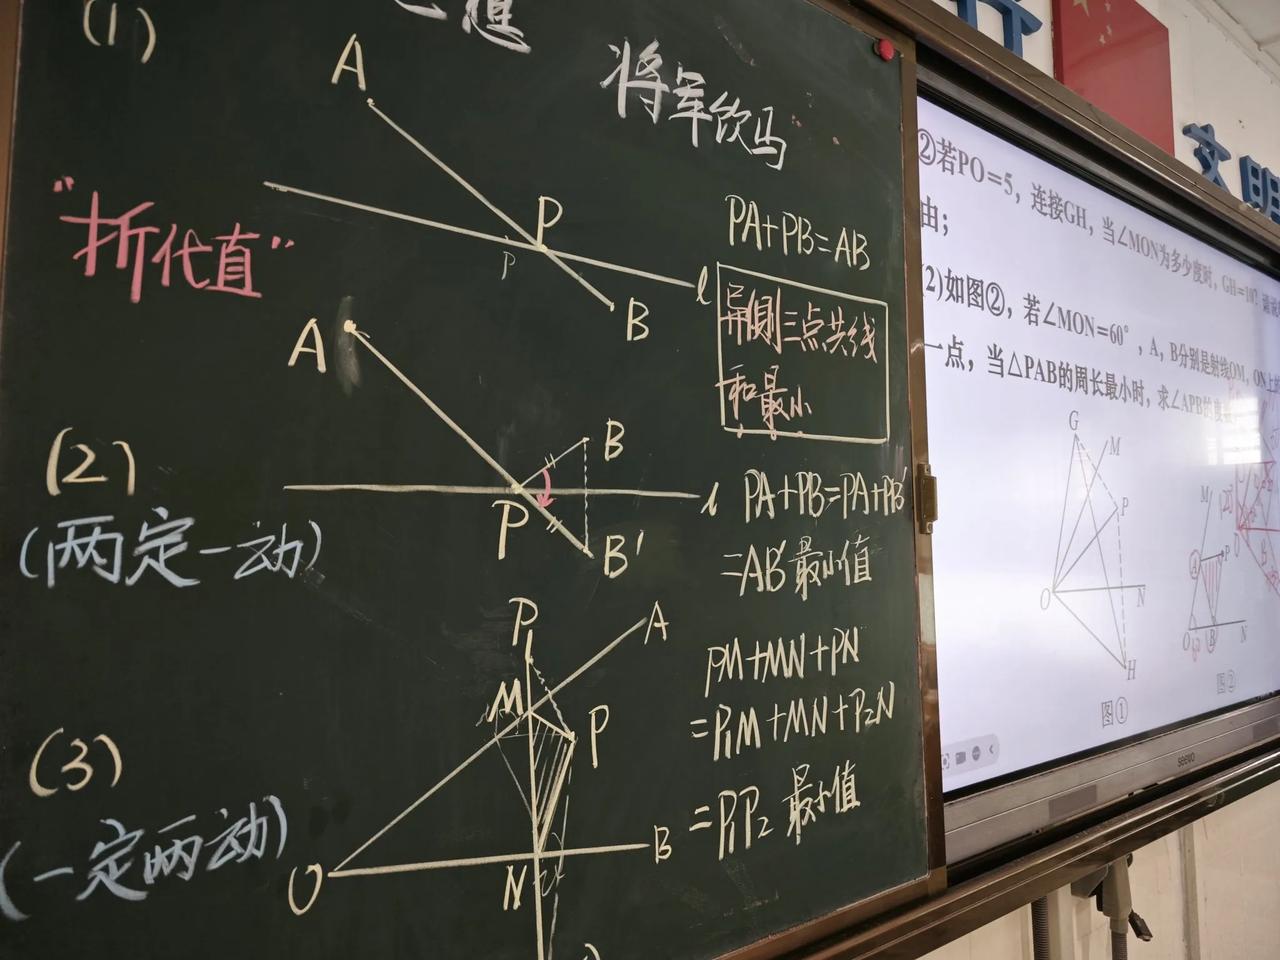 (1)
想
将军饮马
A
P
P
l
B
“折代直”
PA+PB=AB
异侧三点共线
和最小
A
B
(2)
(两定一动)
P
l
B'
PA+PB=PA+PB'
=AB'最小值
P₁
A
M
P
(3)
(一定两动)
O
N
B
PM+MN+PN
=P₁M+MN+P₂N
=P₁P₂ 最小值
文明
②若PO=5，连接GH，当∠MON为多少度时，GH=10?
由;
(2)如图②，若∠MON=60°，A，B分别是射线OM，ON上
一点，当△PAB的周长最小时，求∠APB的度
G
M
P
O
N
H
图①
M
A
P
O
B
N
图②
seewo